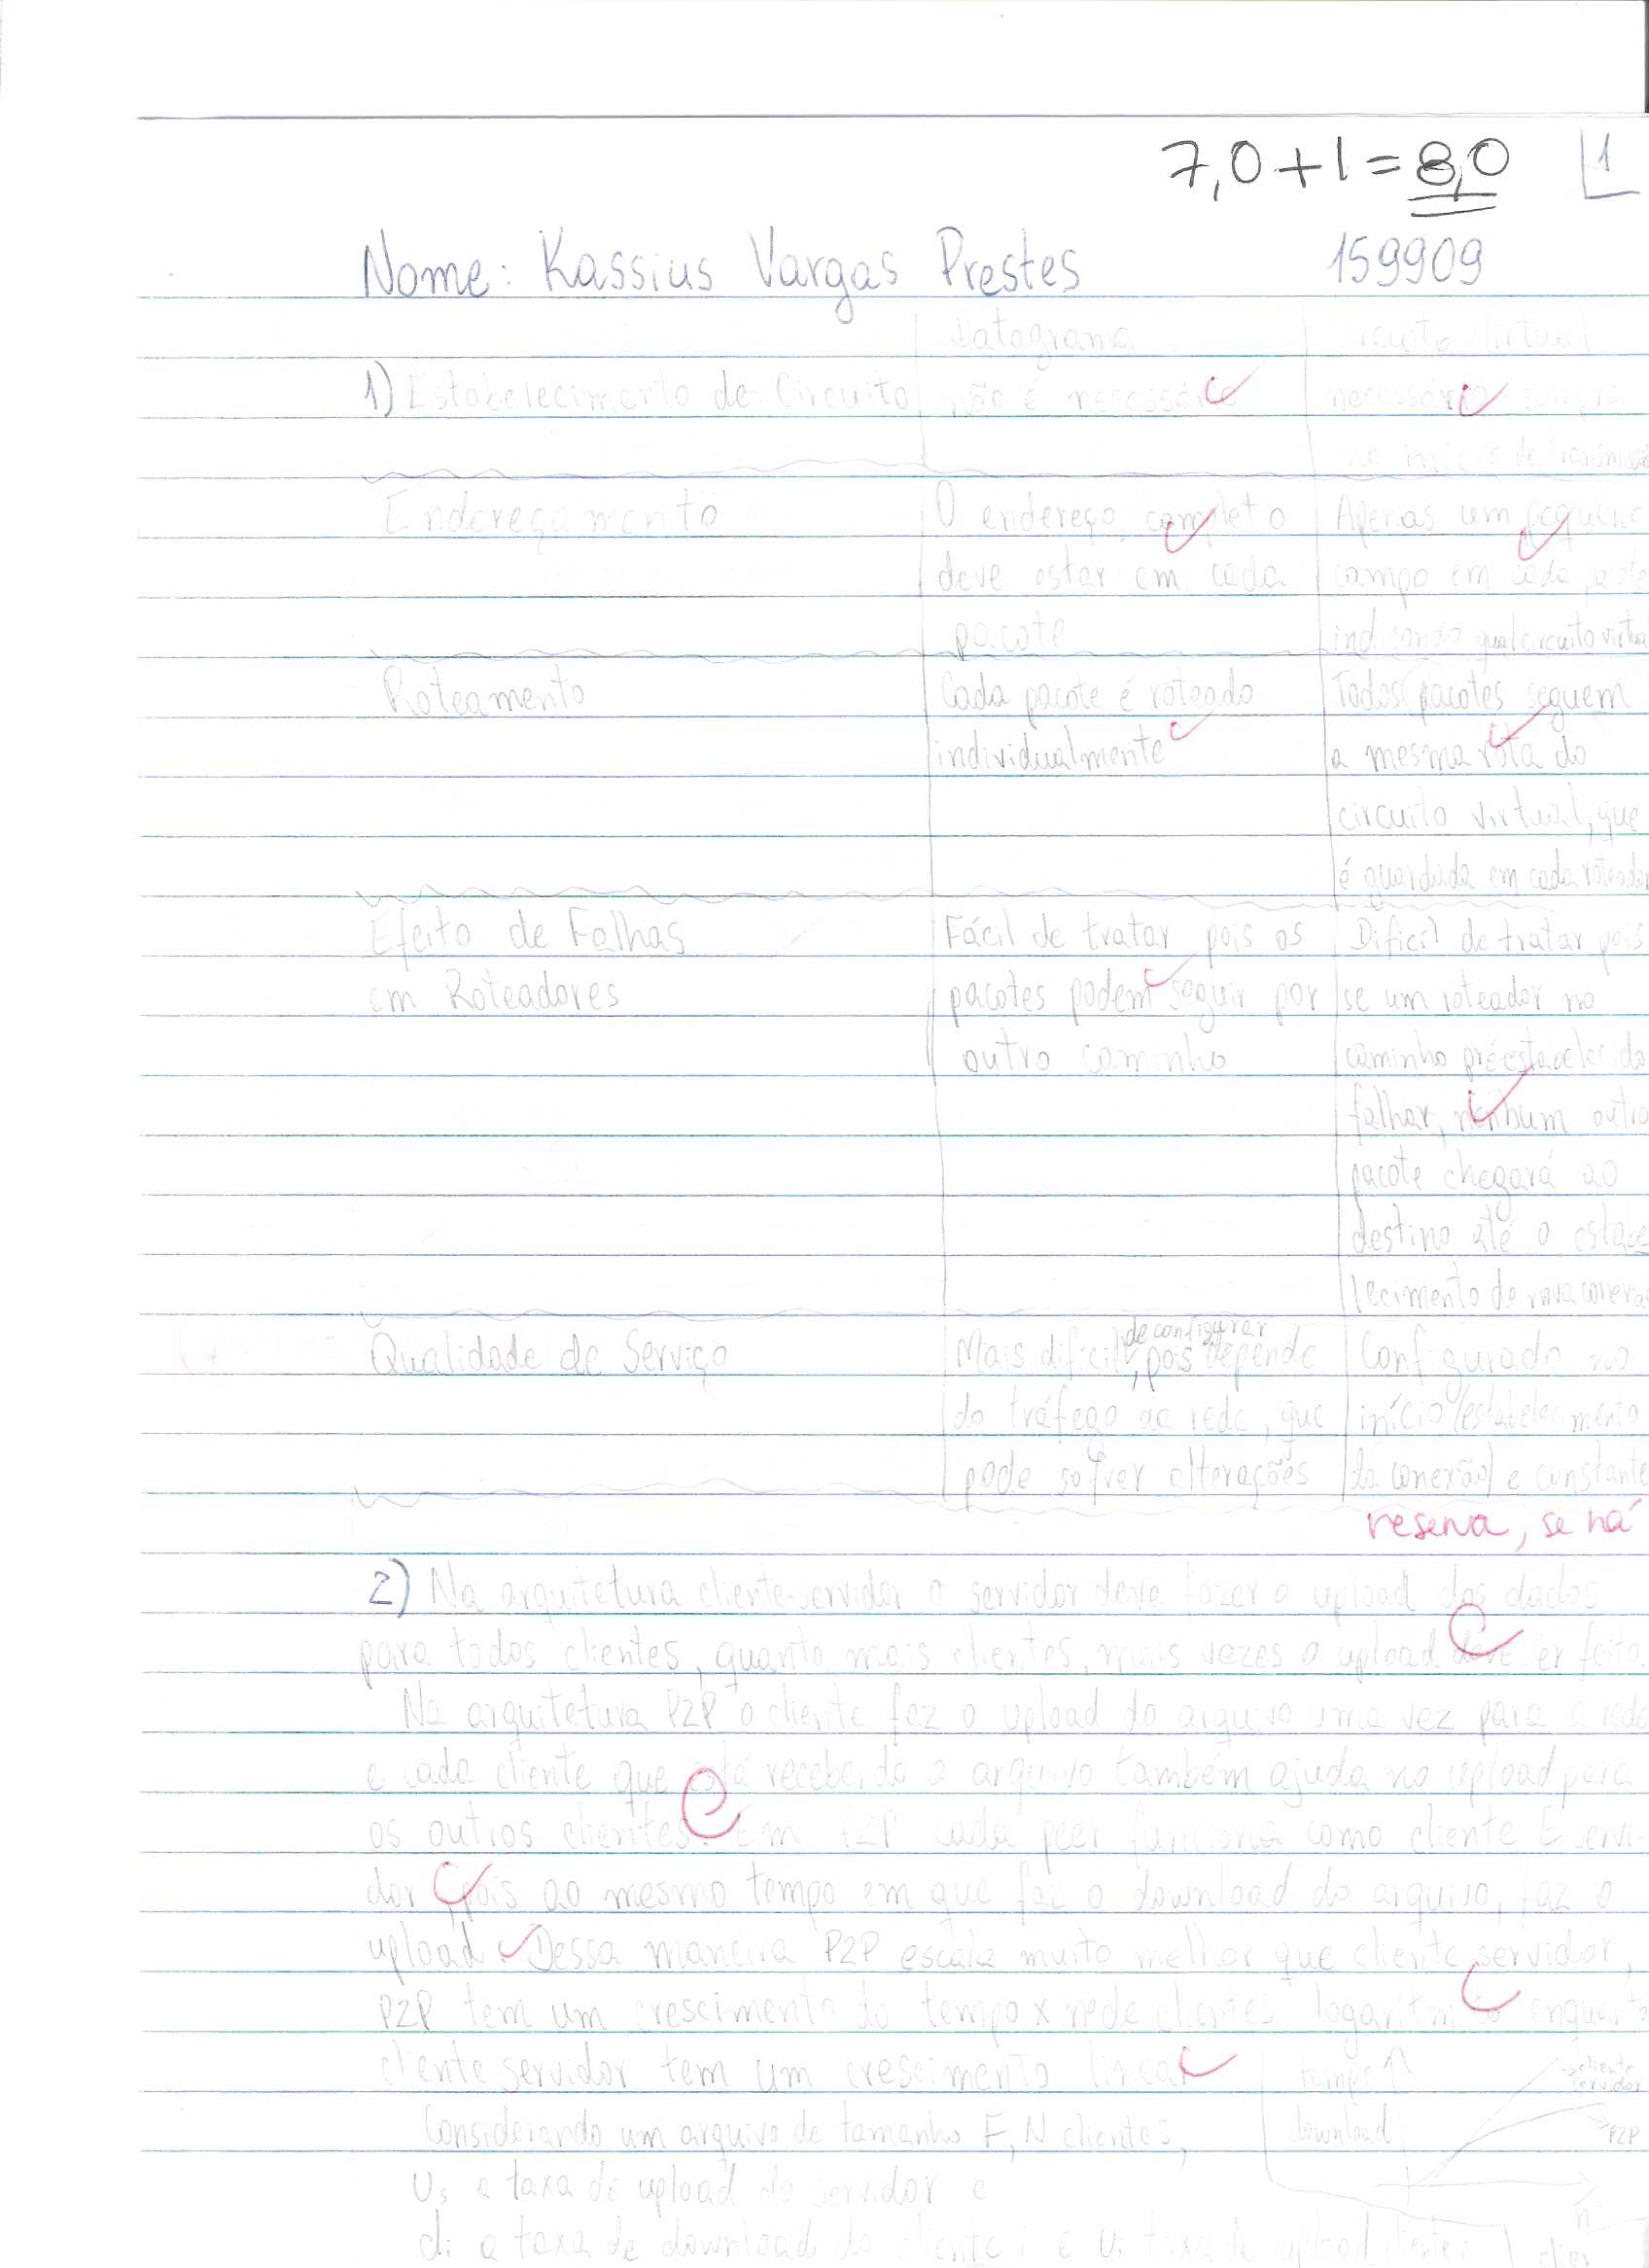 7,0+1=8,0 1
Nome: Kassius Vargas Prestes 159909
Datagrama Circuito Virtual
1) Estabelecimento de Circuito não é necessário necessário sempre
no início da transmissão
Endereçamento O endereço completo Apenas um pequeno
deve estar em cada campo em cada pacote
pacote indicando qual circuito virtual
Roteamento Cada pacote é roteado Todos pacotes seguem
individualmente a mesma rota do
circuito virtual, que
é guardada em cada roteador
Efeito de Falhas Fácil de tratar pois os Dificil de tratar pois
em Roteadores pacotes podem seguir por se um roteador no
outro caminho caminho préestabelecido
falhar, nenhum outro
pacote chegará ao
destino até o estabe
lecimento de nova conexão
Qualidade de Serviço Mais dificil de configurar, pois depende Configurado no
do tráfego da rede, que início (estabelecimento
pode sofrer alterações da conexão) e constante
reserva, se há
2) Na arquitetura cliente-servidor o servidor deve fazer o upload dos dados
para todos clientes, quanto mais clientes, mais vezes o upload deve ser feito.
Na arquitetura P2P o cliente faz o upload do arquivo uma vez para a rede
e cada cliente que está recebendo o arquivo também ajuda no upload para
os outros clientes. Em P2P cada peer funciona como cliente E servi-
dor, pois ao mesmo tempo em que faz o download do arquivo, faz o
upload. Dessa maneira P2P escala muito melhor que cliente servidor,
P2P tem um crescimento do tempo x nº de clientes logarítmico enquanto
cliente servidor tem um crescimento linear tempo cliente
servidor
Considerando um arquivo de tamanho F, N clientes, download P2P
Us a taxa de upload do servidor e
di a taxa de download do cliente i e Ui taxa de upload cliente i n